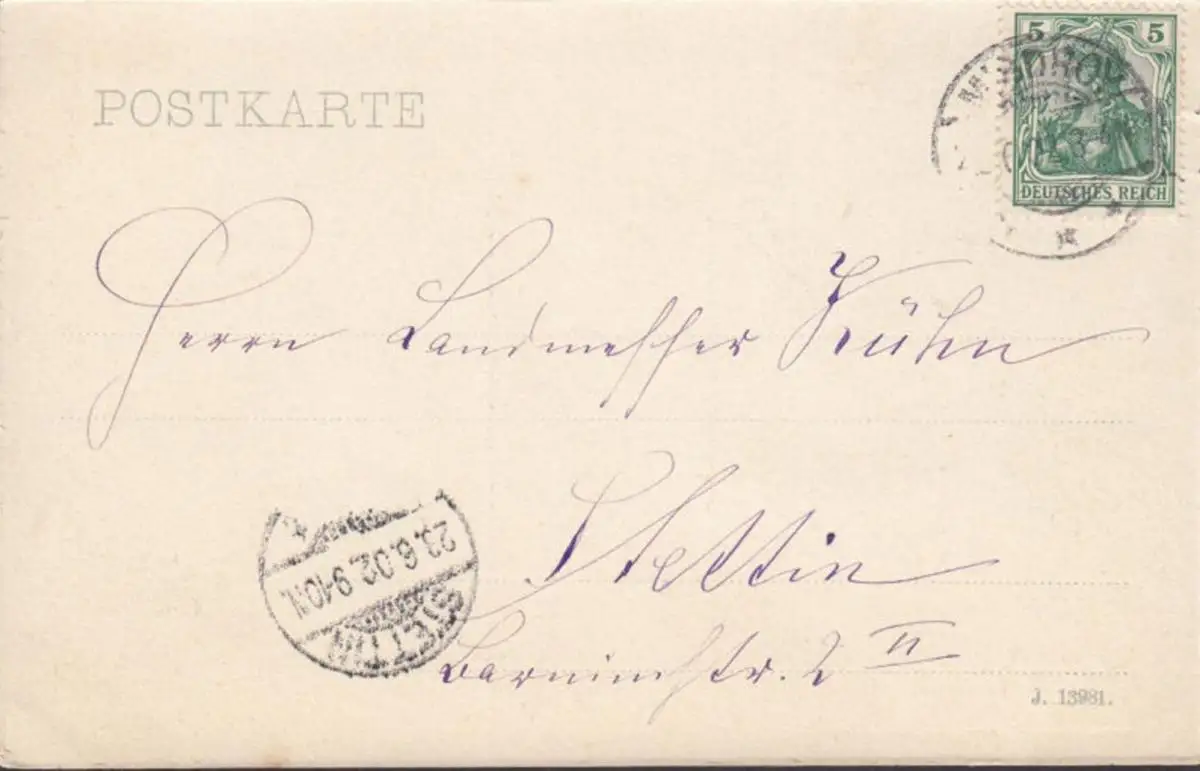 POSTKARTE
5 5
DEUTSCHES REICH
Herrn Landmesser Kühn
Stettin
Barnimstr. 2 II
STETTIN
23.6.02. 9-10 N.
J. 13981.